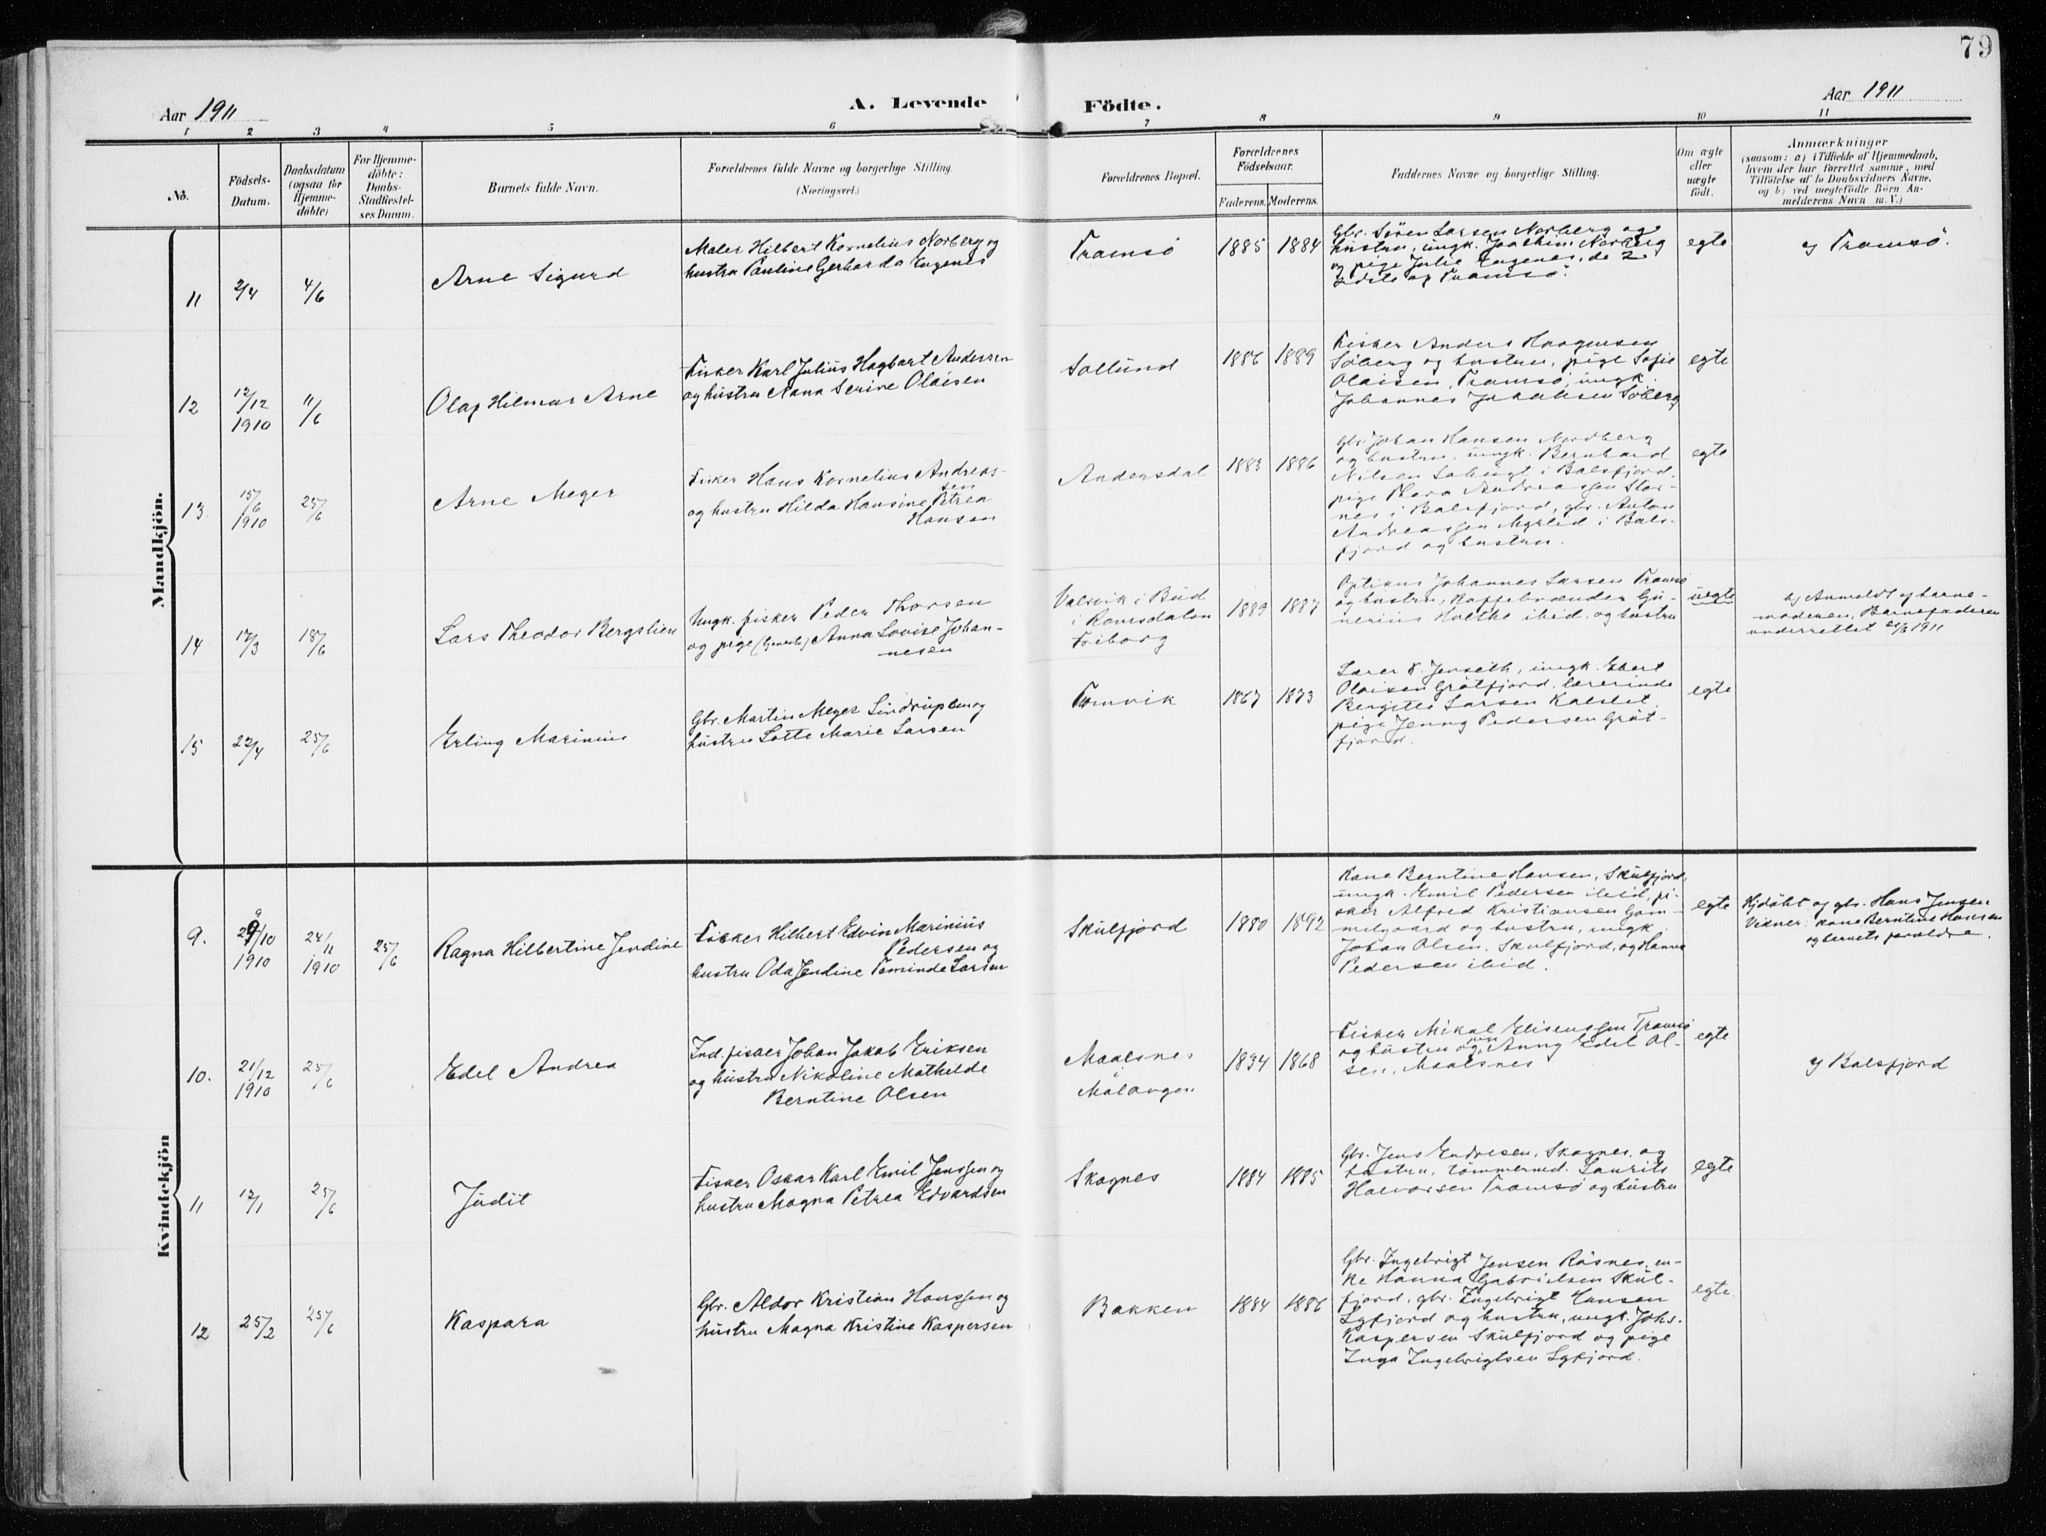 79
Aar 1911
A. Levende Födte.
Aar 1911
1 2 3 4 5 6 7 8 9 10 11
No.
Födsels-
Datum.
Daabsdatum
(ogsaa for
Hjemme-
döbte)
For Hjemme-
döbte:
Daabs-
Stadfæstel-
ses Datum.
Barnets fulde Navn.
Forældrenes fulde Navne og borgerlige Stilling.
(Næringsvei.)
Forældrenes Bopæl.
Forældrenes
Födselsaar.
Faderens. Moderens.
Faddernes Navne og borgerlige Stilling.
Om ægte
eller
uægte
födt.
Anmærkninger
(saasom: a) i Tilfælde af Hjemmedaab,
hvem der har forrettet samme, med
Tilföielse af to Daabsvidners Navne,
og b) ved uægtefödte Börn An-
melderens Navn m. V.)
Mandkjön.
11
2/4
4/6
Arne Sigurd
Maler Hilbert Kornelius Norberg og
hustru Pauline Gerharda Eugenes
Tromsö
1885
1884
Gbr. Sören Larsen Norberg og
hustru, ungk. Joachim Norberg
og pige Julie Eugenes, de 2
sidste og Tromsö.
egte
af Tromsö.
12
12/12
1910
11/6
Olaf Hilmar Arne
Fisker Karl Julius Hagbart Andersen
og hustru Nana Serine Olaisen
Sollund
1886
1889
Fisker Anders Haagensen
Söberg og hustru, pige Sofie
Olaisen, Tromsö, ungk.
Johannes Jakobsen Söberg
egte
13.
15/6
1910
25/6
Arne Meyer
Fisker Hans Kornelius Andreas-
sen
og hustru Hilda Hansine Petrea
Hansen
Andersdal
1883
1886
Gbr. Johan Hansen Nordberg
og hustru, ungk. Bernhard
Nilsen i Balsfjord,
pige Andreassen Stor-
nes i Balsfjord, gbr. Anton
Andreassen Myrlid i Bals-
fjord og hustru.
egte
14
17/3
18/6
Lars Theodor Bergslien
Ungk. fisker Peder Thorsen
og pige Anna Lovise Johan-
nesen
i Bud
i Romsdalen
Friborg
1889
1887
Optikus Johannes Larsen Tromsö
og hustru, Kaffebrænder Gu-
nerius Holthe ibid. og hustru
uegte
a) Anmeldt af barne-
moderen, Barnefaderen
underrettet 21/6 1911
15
22/4
25/6
Erling Marinius
Gbr. Martin Meyer Lindrupsen og
hustru Lotte Marie Larsen
Tomvik
1867
1873
Lærer K. Jenseth, ungk. Ebert
Olaisen Grötfjord, lærerinde
Bergitte Larsen Kalslet,
pige Jenny Pedersen Gröt-
fjord.
egte
Kvindekjön
9.
29/10
1910
24/11
1910
25/6
Ragna Hilbertine Jendine
Fisker Hilbert Edvin Marinius
Pedersen og
hustru Oda Jendine Feminde Larsen
Skulfjord
1880
1892
Kone Berntine Hansen, Skulfjord,
ungk. Emil Pedersen ibid, fi-
sker Alfred Kristiansen Gam-
melgaard og hustru, ungk.
Johan Olsen, Skulfjord, og Hanna
Pedersen ibid.
egte
Hjdöbt af gbr. Hans Jensen
Vidner: kone Berntine Hansen
og barnets forældre.
10.
21/12
1910
25/6
Edel Andrea
Ind. fisker Johan Jakob Eriksen
og hustru Nikoline Mathilde
Berntine Olsen
Maalsnes
Malangen
1834
1868
Fisker Mikal Elisenssen Tromsö
og hustru og Anny Edel Ol-
sen, Maalsnes
egte
af Balsfjord
11
12/1
25/6
Judit
Fisker Oskar Karl Emil Jenssen og
hustru Magna Petrea Edvardsen
Skognes
1884
1885
Gbr. Jens Endresen, Skognes, og
hustru, tömmermd. Laurits
Halvorsen Tromsö og hustru
egte
12
25/2
25/6
Kaspara
Gbr. Aldor Kristian Hanssen og
hustru Magna Kristine Kaspersen
Bakken
1884
1886
Gbr. Ingebrigt Jensen Råsnes, en-
ke Hanna Gabrielsen Skul-
fjord, gbr. Ingebrigt Hansen
Lyfjord og hustru, ungk. Johs.
Kaspersen Skulfjord og pige
Inga Ingebrigtsen Lyfjord.
egte.